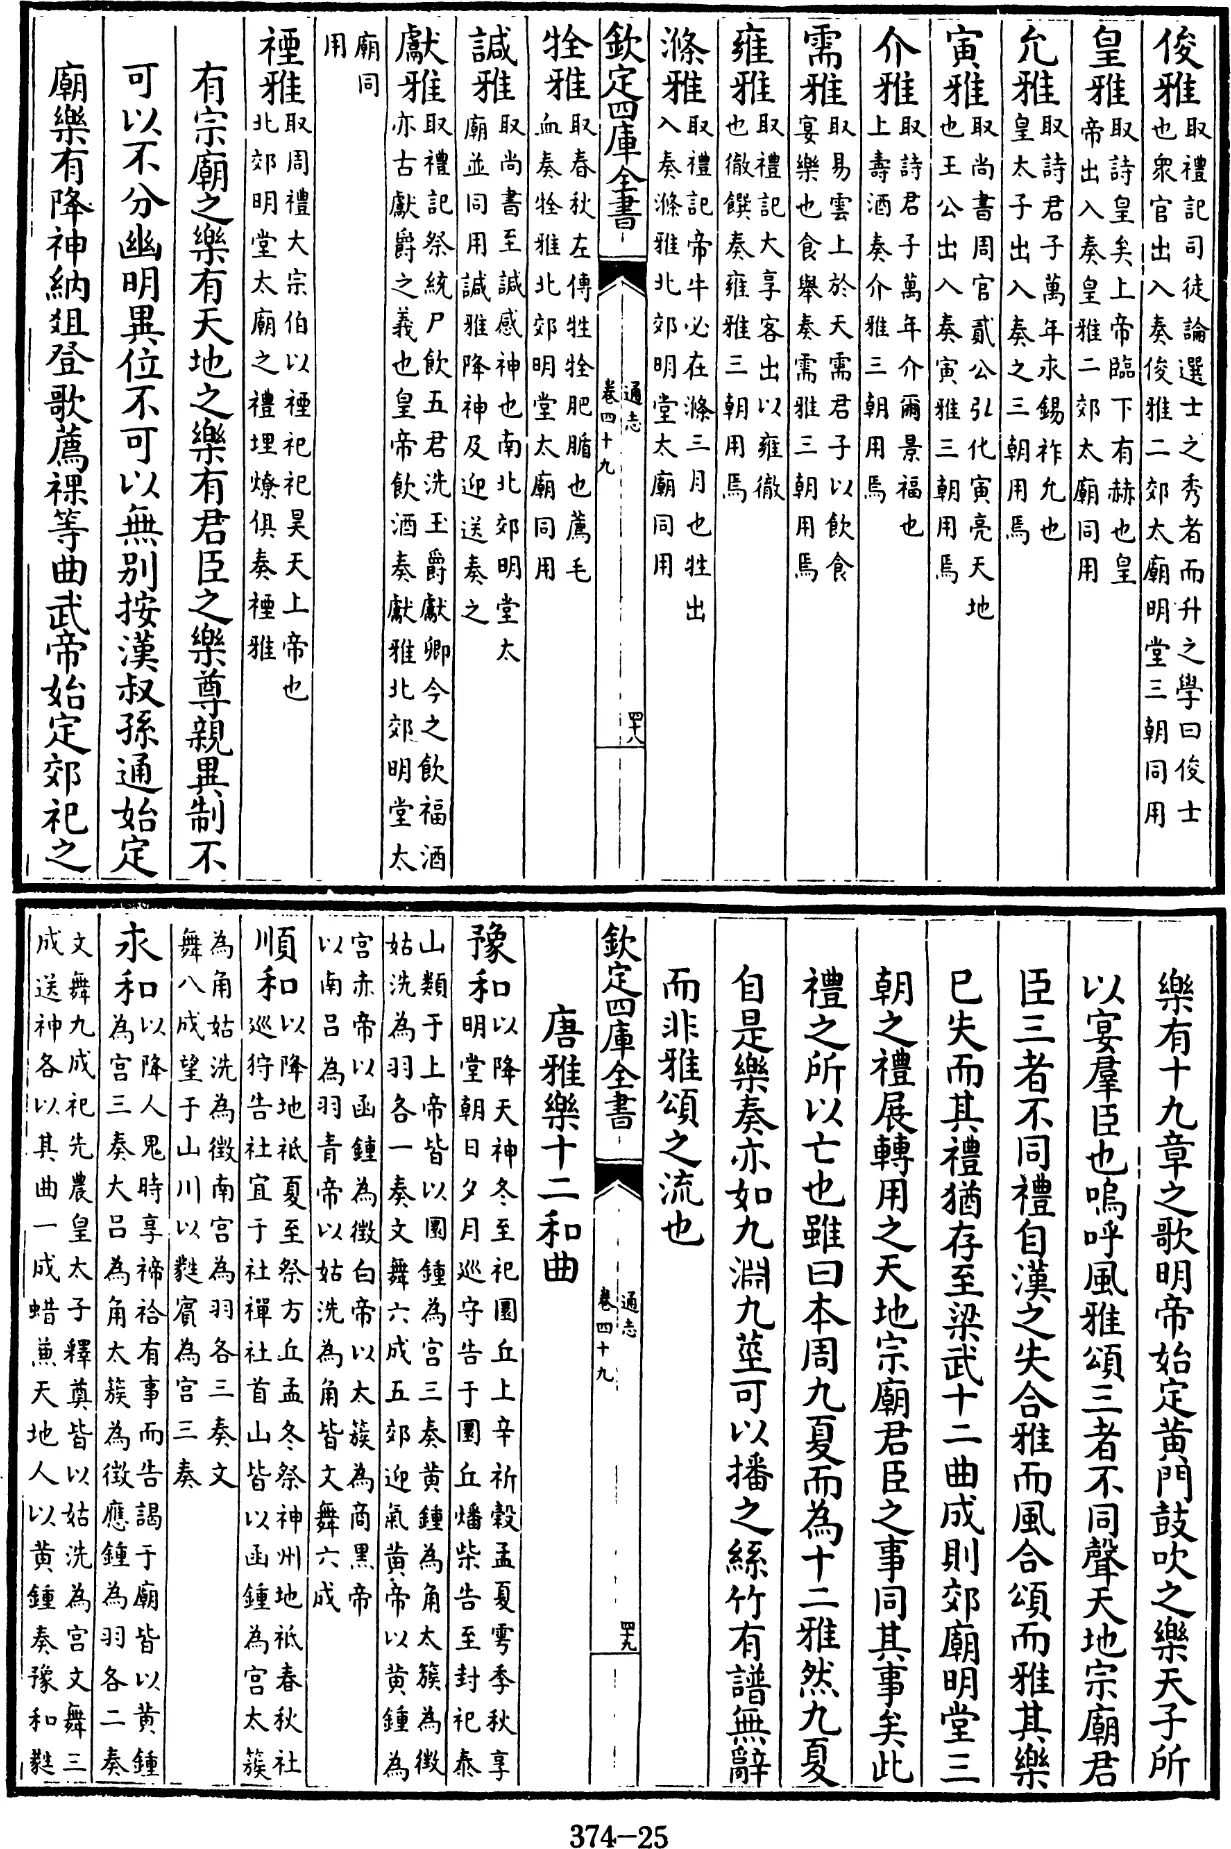 俊雅取禮記司徒論選士之秀者而升之學曰俊士也衆官出入奏俊雅二郊太廟明堂三朝同用
皇雅取詩皇矣上帝臨下有赫也皇帝出入奏皇雅二郊太廟同用
允雅取詩君子萬年永錫祚允也皇太子出入奏之三朝用焉
寅雅取尚書周官貳公弘化寅亮天地也王公出入奏寅雅三朝用焉
介雅取詩君子萬年介爾景福也上壽酒奏介雅三朝用焉
需雅取易雲上於天需君子以飲食宴樂也食舉奏需雅三朝用焉
雍雅取禮記大享客出以雍徹也徹饌奏雍雅三朝用焉
滌雅取禮記帝牛必在滌三月也牲出入奏滌雅北郊明堂太廟同用
欽定四庫全書
通志
卷四十九
四十八
牷雅取春秋左傳牲牷肥腯也薦毛血奏牷雅北郊明堂太廟同用
諴雅取尚書至諴感神也南北郊明堂太廟並同用諴雅降神及迎送奏之
獻雅取禮記祭統尸飲五君洗玉爵獻卿今之飲福酒亦古獻爵之義也皇帝飲酒奏獻雅北郊明堂太
廟同用
禋雅取周禮大宗伯以禋祀祀昊天上帝也北郊明堂太廟之禮埋燎俱奏禋雅
有宗廟之樂有天地之樂有君臣之樂尊親異制不
可以不分幽明異位不可以無別按漢叔孫通始定
廟樂有降神納俎登歌薦祼等曲武帝始定郊祀之
樂有十九章之歌明帝始定黄門鼓吹之樂天子所
以宴羣臣也嗚呼風雅頌三者不同聲天地宗廟君
臣三者不同禮自漢之失合雅而風合頌而雅其樂
已失而其禮猶存至梁武十二曲成則郊廟明堂三
朝之禮展轉用之天地宗廟君臣之事同其事矣此
禮之所以亡也雖曰本周九夏而為十二雅然九夏
自是樂奏亦如九淵九莖可以播之絲竹有譜無辭
而非雅頌之流也
欽定四庫全書
通志
卷四十九
四十九
唐雅樂十二和曲
豫和以降天神冬至祀圜丘上辛祈穀孟夏雩季秋享明堂朝日夕月巡守告于圜丘燔柴告至封祀泰
山類于上帝皆以圜鍾為宫三奏黄鍾為角太簇為徵姑洗為羽各一奏文舞六成五郊迎氣黄帝以黄鍾為
宫赤帝以函鍾為徵白帝以太簇為商黑帝以南吕為羽青帝以姑洗為角皆文舞六成
順和以降地祇夏至祭方丘孟冬祭神州地祇春秋社巡狩告社宜于社禪社首山皆以函鍾為宫太簇
為角姑洗為徵南宫為羽各三奏文舞八成望于山川以蕤賓為宫三奏
永和以降人鬼時享禘祫有事而告謁于廟皆以黄鍾為宫三奏大吕為角太簇為徵應鍾為羽各二奏
文舞九成祀先農皇太子釋奠皆以姑洗為宫文舞三成送神各以其曲一成蜡兼天地人以黄鍾奏豫和蕤
374-25